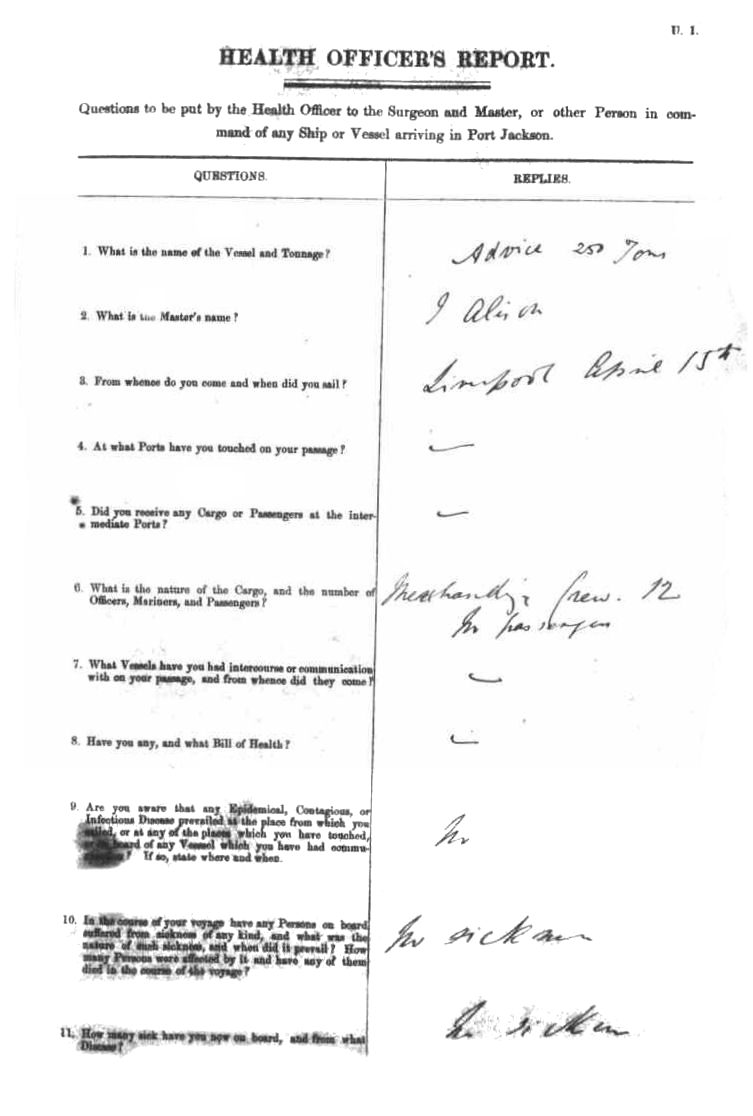 U. 1.
HEALTH OFFICER'S REPORT.
Questions to be put by the Health Officer to the Surgeon and Master, or other Person in com-
mand of any Ship or Vessel arriving in Port Jackson.
QUESTIONS.
REPLIES.
1. What is the name of the Vessel and Tonnage?
Advice 250 Tons
2. What is the Master's name?
J Alison
3. From whence do you come and when did you sail?
Liverpool April 15th
4. At what Ports have you touched on your passage?
5. Did you receive any Cargo or Passengers at the inter-
mediate Ports?
6. What is the nature of the Cargo, and the number of
Officers, Mariners, and Passengers?
Merchandize Crew. 12
No passengers
7. What Vessels have you had intercourse or communication
with on your passage, and from whence did they come?
8. Have you any, and what Bill of Health?
9. Are you aware that any Epidemical, Contagious, or
Infectious Disease prevailed at the place from which you
sailed, or at any of the places which you have touched,
or on board of any Vessel which you have had commu-
nication? If so, state where and when.
No
10. In the course of your voyage have any Persons on board
suffered from sickness of any kind, and what was the
nature of such sickness, and when did it prevail? How
many Persons were affected by it and have any of them
died in the course of the voyage?
No sickness
11. How many sick have you now on board, and from what
Disease?
No sickness